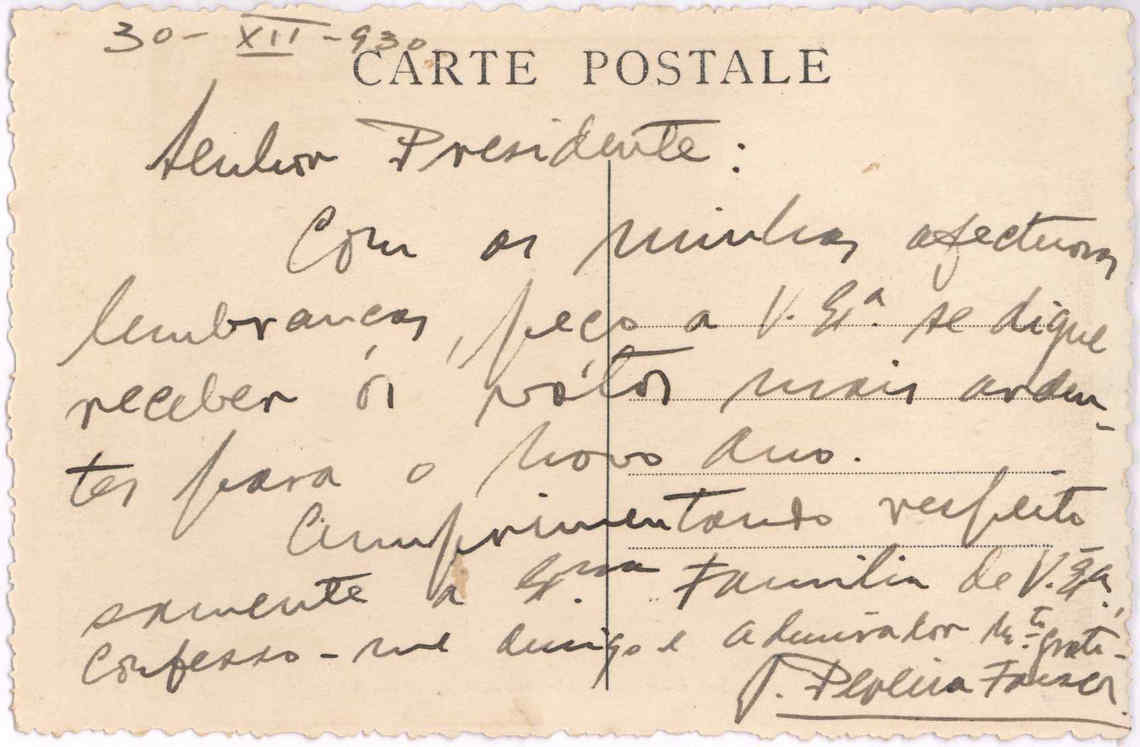 30-XII-930
CARTE POSTALE
Senhor Presidente:
Com as minhas afectuosas
lembranças, peço a V. Exª. se digne
receber os vótos mais arden-
tes para o novo ano.
Cumprimentando respeito
samente a Exma Familia de V. Exª.,
confesso-me amigo e admirador m.to grato
Pereira